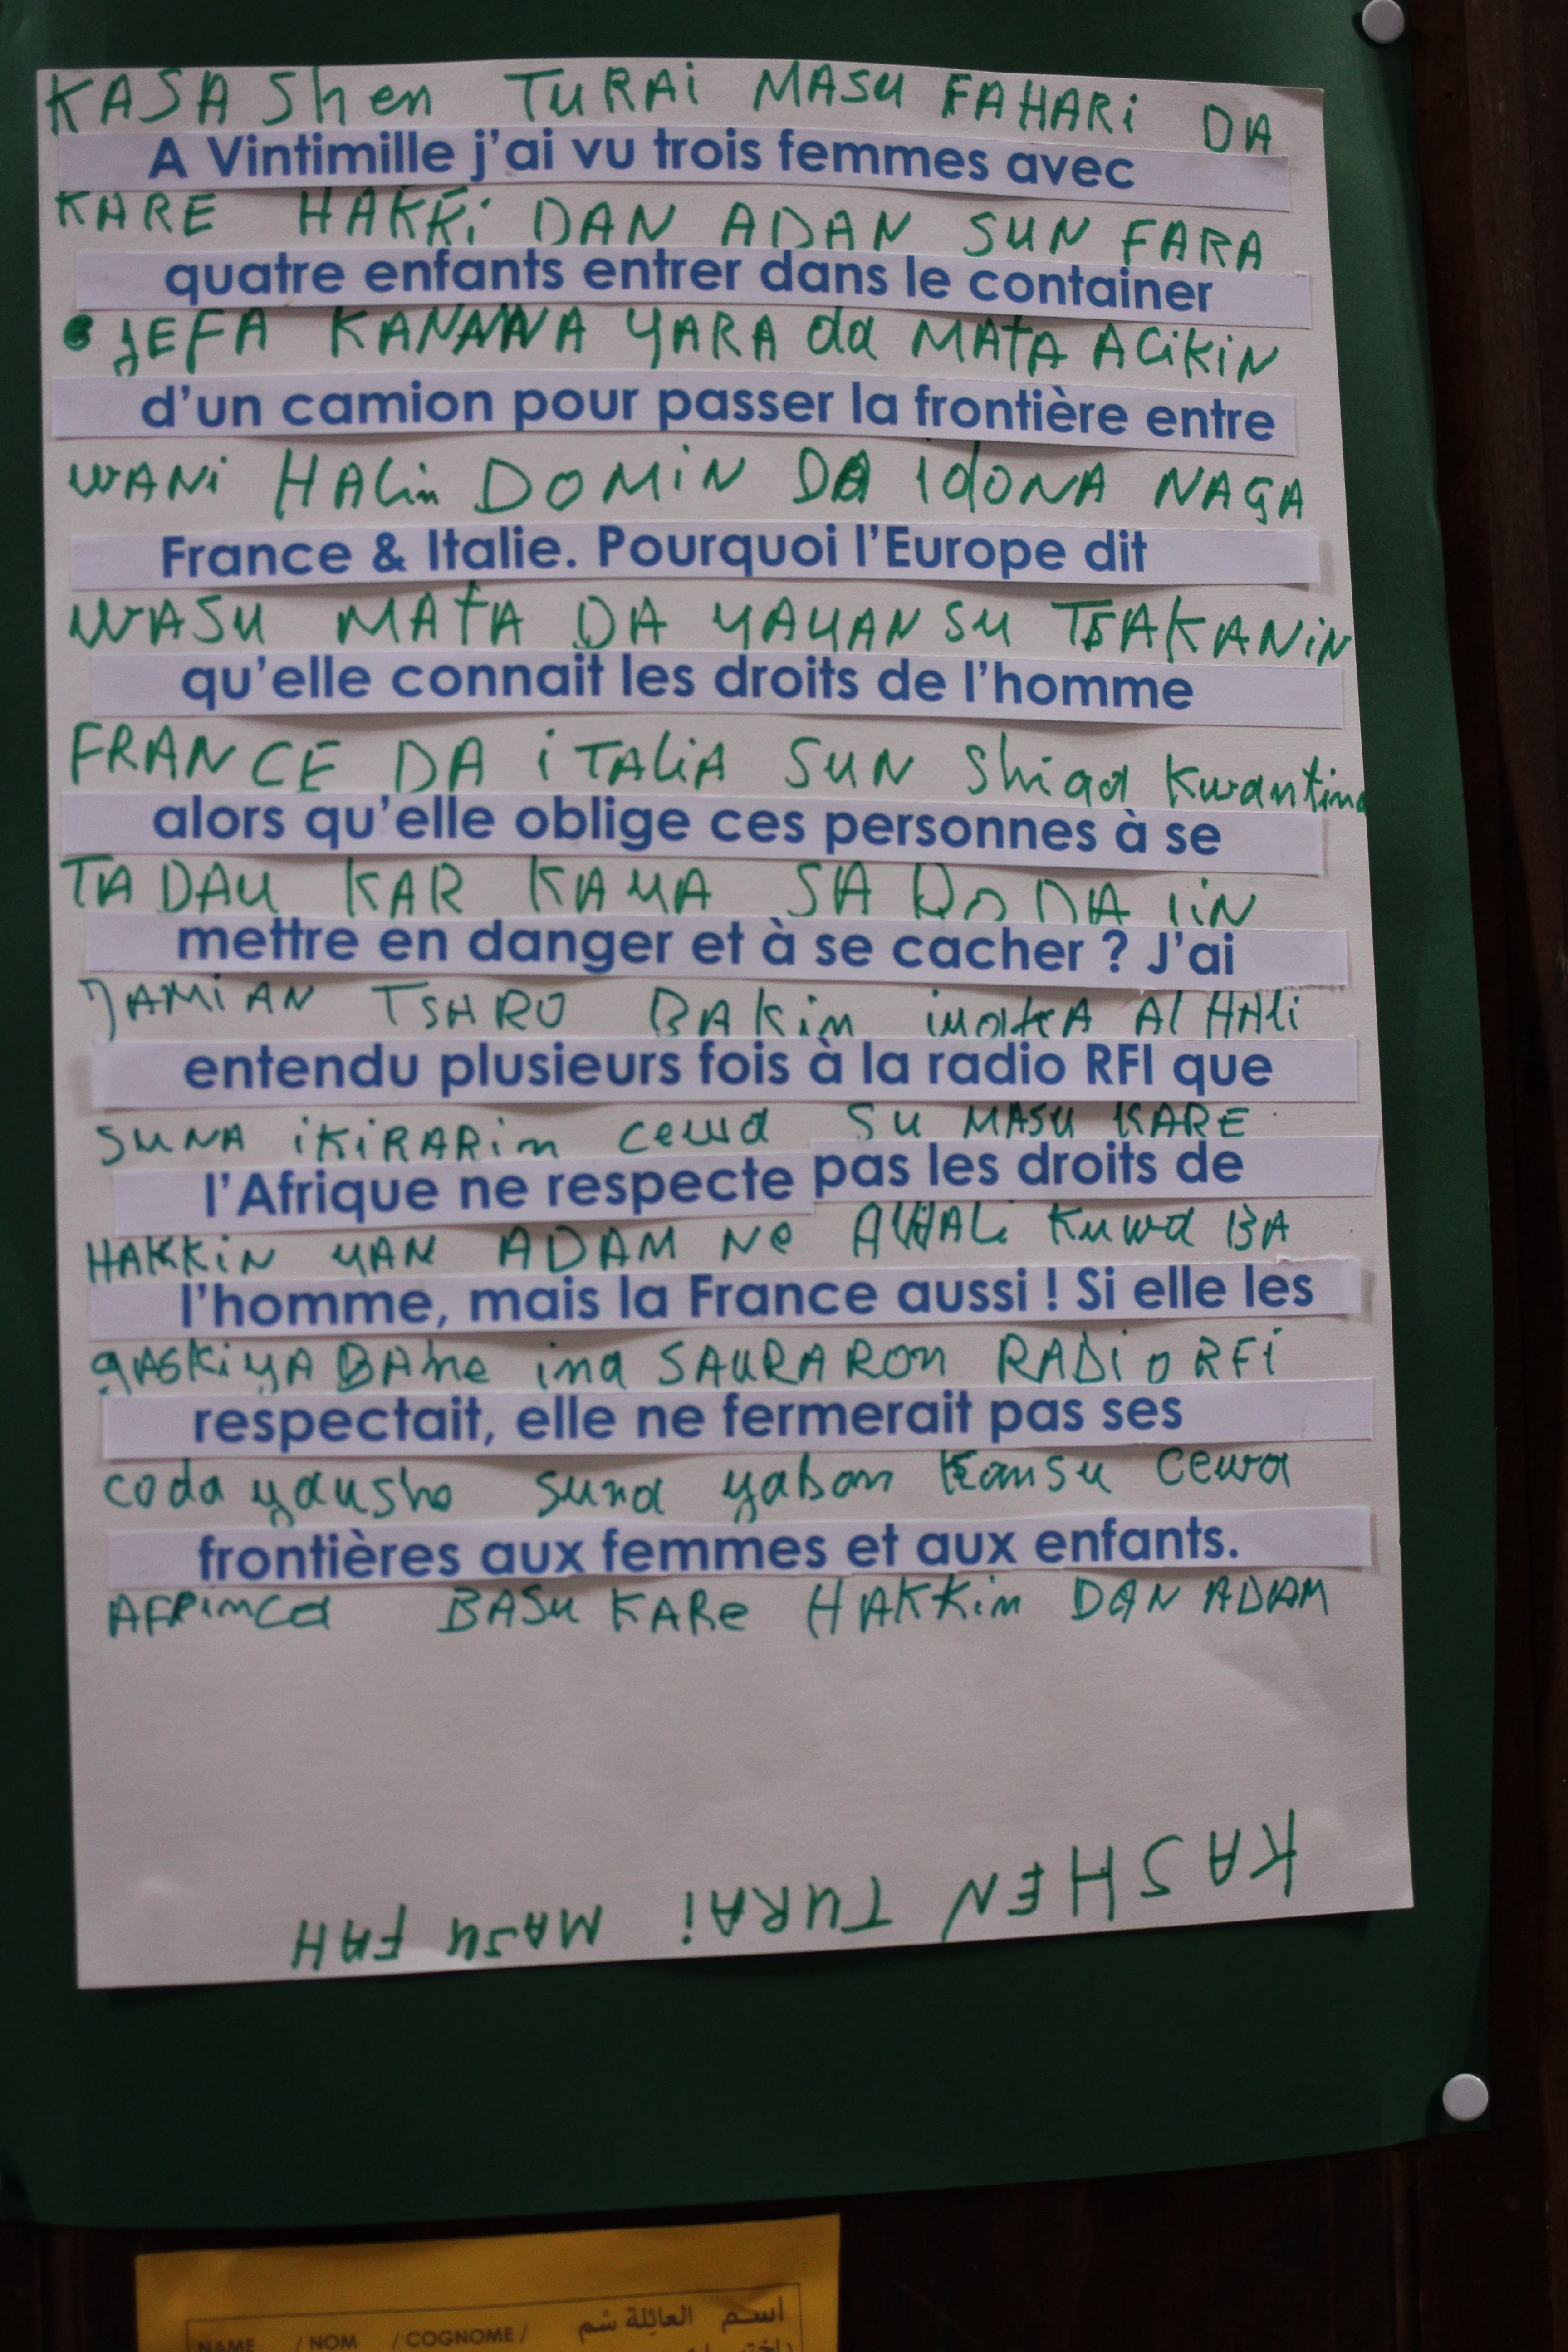 KASAShen TURAi MASU FAHARi DA
A Vintimille j'ai vu trois femmes avec
KARE HAKKi DAN ADAN SUN FARA
quatre enfants entrer dans le container
JEFA KANANA YARA da MATA ACiKiN
d'un camion pour passer la frontière entre
WANi HALin DOMiN DA idONA NAGA
France & Italie. Pourquoi l'Europe dit
WASU MATA DA YAYANSU TSAKANiN
qu'elle connait les droits de l'homme
FRANCE DA iTALiA SUN Shiga Kwantina
alors qu'elle oblige ces personnes à se
TA DAU KAR KAYA SA DODA
mettre en danger et à se cacher ? J'ai
JAMiAN TSARO BAKin AlHAli
entendu plusieurs fois à la radio RFI que
SUNA iKiRARin cewa SU MASU KARE
l'Afrique ne respecte pas les droits de
HAKKiN YAN ADAM Ne AlHALi Kuwa BA
l'homme, mais la France aussi ! Si elle les
gASKiYA BAne ina SAURARON RADiO RFi
respectait, elle ne fermerait pas ses
coda yausho suna yaban Kansu cewa
frontières aux femmes et aux enfants.
AFRinca BASU KARe HAKKin DAN ADAM
KASHEN TURAi MASU FAH
اسم العائلة
NAME / NOM / COGNOME /